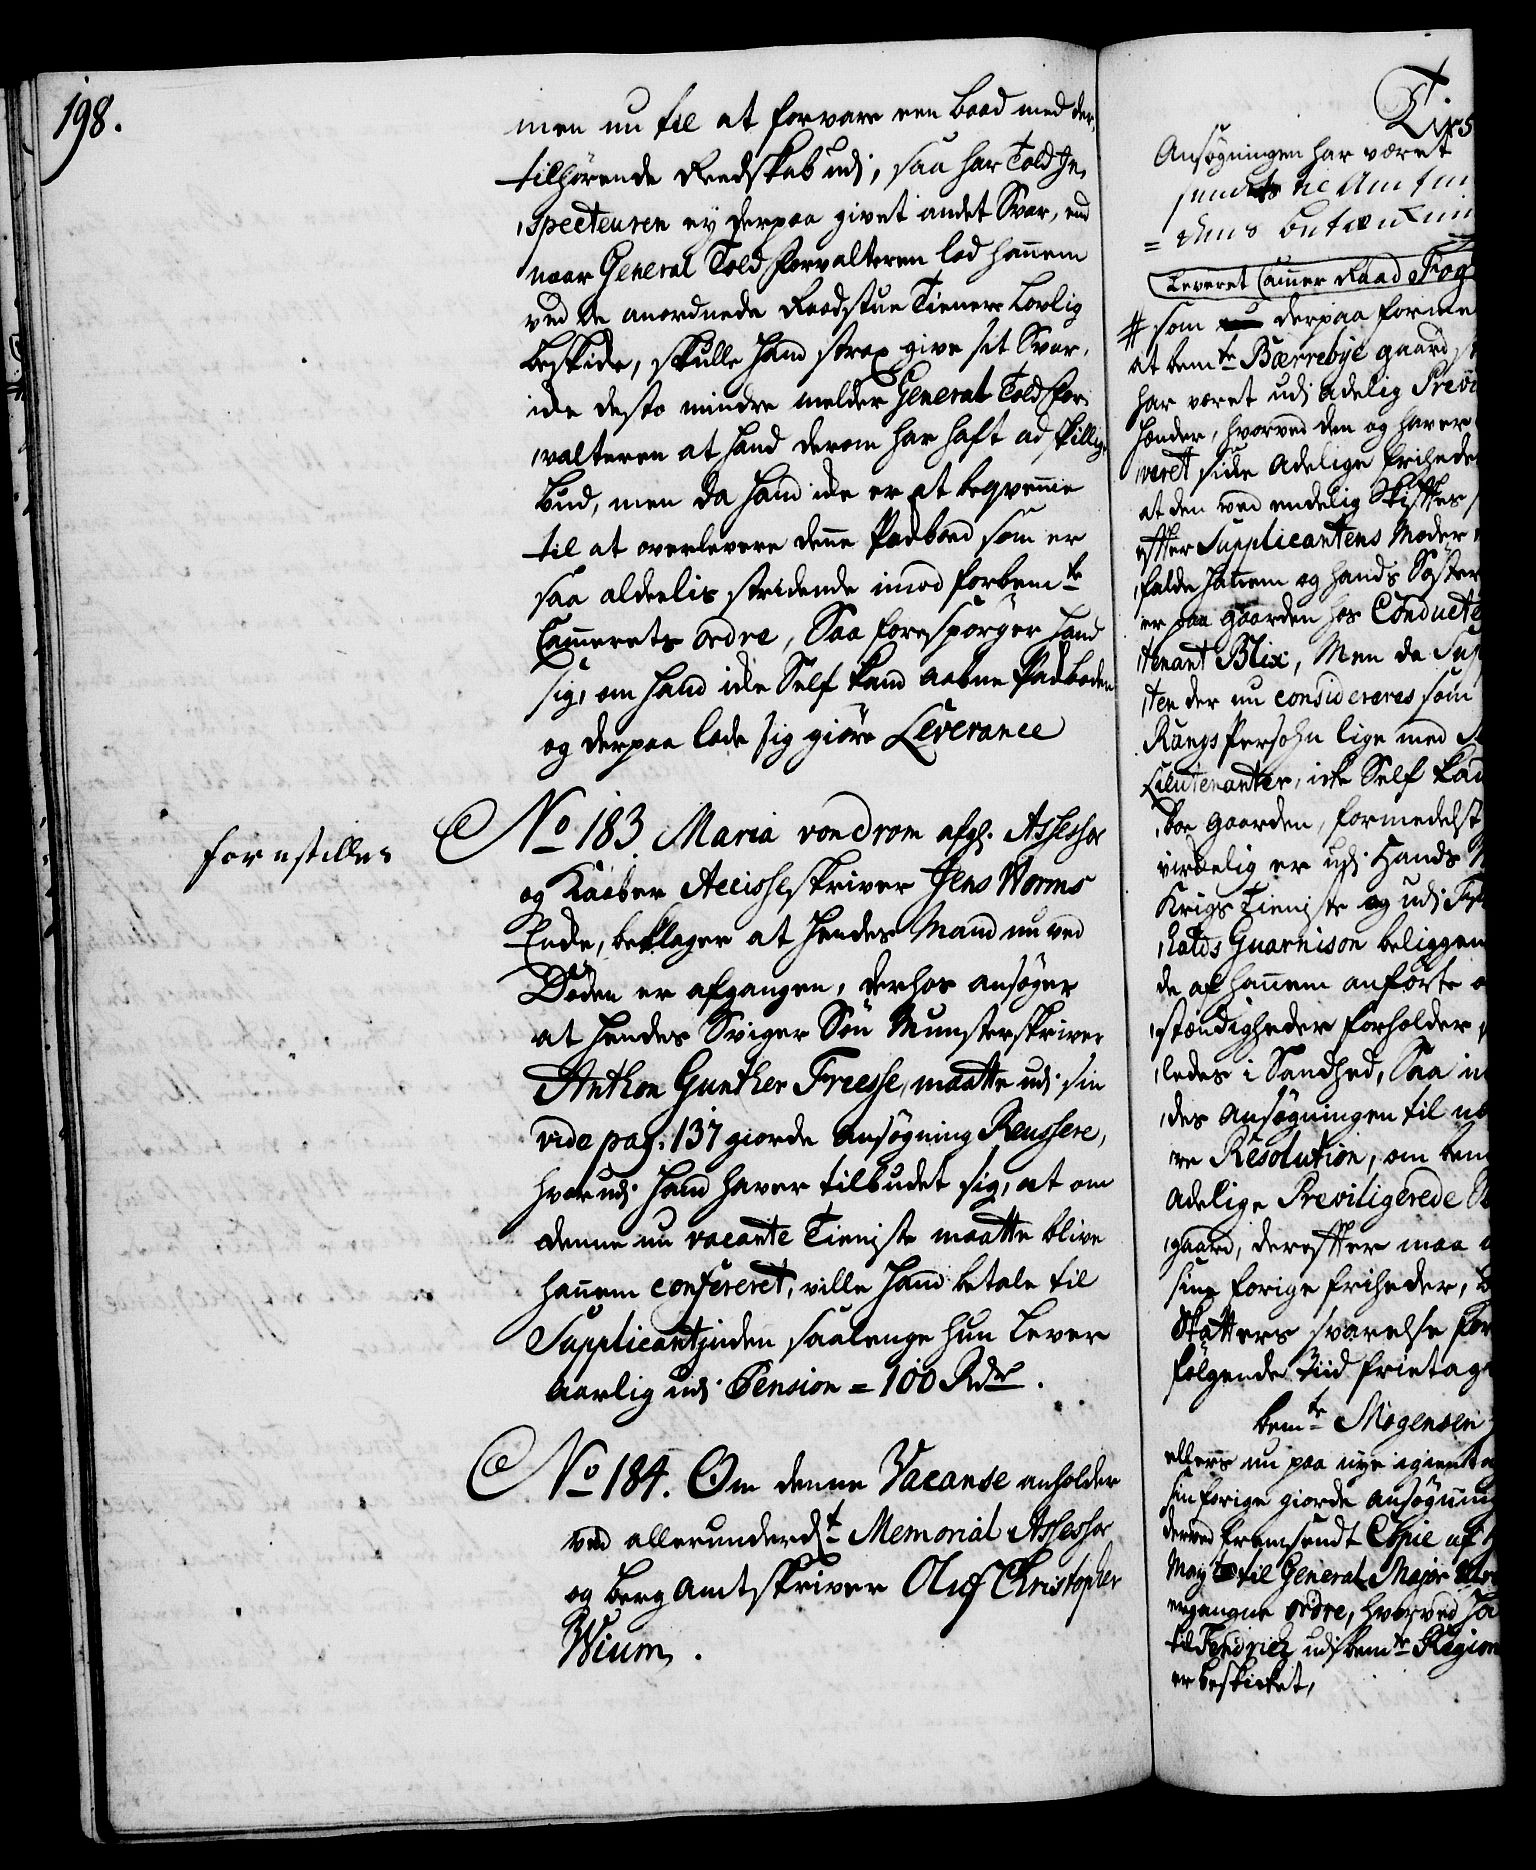 198.
men nu til at forvare een Baad med der,
tilhørende Reedskab udj, saa har Told In,
,specteuren ey derpaa givet andet Svar, end
naar General Told Forvalteren lod hannem
ved de anordnede Raadstue Tienere Lovlig
beskide, skulle Hand strax give sit Svar,
iche desto mindre melder General Told For,
,valteren at Hand derom har haft adskillige
Bud, men da Hand iche er at beqvemme
til at overlevere denne Padboed som er
saa aldeelis stridende imod forbemte
Camerets ordre, Saa forespörger Hand
sig, om Hand icke Self kand aabne Padboden
og derpaa lade sig giöre Leverance
forestilles
No 183 Maria von Drom afg. Assessor
og Kaaber Accisseskriver Jens Worms
Encke, beklager at Hendes Mand nu ved
Döden er afgangen, derhos ansöger
at Hendes Sviger Sön Munsterskriver
Anthon Gunther Freesse, maatte udj sin
vide pag: 137 giorde Ansögning Reussere,
hvorudj Hand haver tilbudet sig, at om
denne nu vacante Tieniste maatte blive
hannem confereret, ville Hand betale til
Supplicantinden saalenge hun Lever
aarlig udj Pension = 100 Rdr.
No 184. Om denne Vacanse anholder
ved allerunderdt Memorial Assessor
og berg Amtskriver Oluf Christopher
Wium.
Ansögningen har været
Leveret Cammer Raad Fog
# som derpaa forme
at bemte Bærrebye gaard
har været udj Adelig Previ
Hænder, hvorved den og haver
,været sine Adelige friheder
at den ved endelig Skiftes
efter Supplicantens Moder
,falde Hannem og hands Söster
er paa Gaarden hos Conducte
,tenant Blix, Men da Sup
,ten der nu consideres som
Rangs Persohn lige med
Lieutenanter, icke Self kan
,boe Gaarden, formedelst
virkelig er udj Hands
Krigs Tieniste og udj Fr
,halds Guarnison beliggen
de af hannem anförte
,stændigheder forholder
,ledes i Sandhed, Saa in
,des Ansögningen til næ
re Resolution, om bem
Adelige Previligerede
,gaard, derefter maa
sine forige friheder,
Skatters svarelse for
fölgende Tiid frietag
bemte Mogensen
ellers nu paa nye igienta
sin forige giorde Ansögning
derved fremsendt Copie af
May til General Major
ergangne ordre, hvorved Ha
til Fendrich udj bemte Regim
er beskicket,